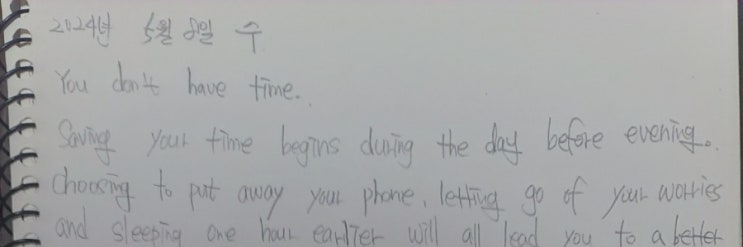 2024년 5월 8일 수
You don't have time.
Saving your time begins during the day before evening.
Choosing to put away your phone, letting go of your worries
and sleeping one hour earlier will all lead you to a better